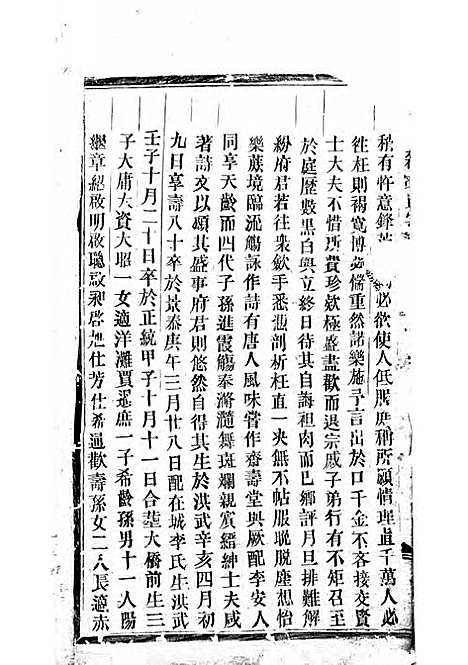 稍有忤意鋒 必欲使人低眉順稍所顧情理直千萬人必
往枉則褐寬博亦惴惴重然諾樂施予言出於口千金不吝接交賢
士大夫不惜所費珍欽極盛盡歡而退宗戚子弟行有不矩召至
於庭歷數黑白與立終日待其自誨袒肉而已鄉評月旦排難解
紛府君若往衆斂手悉憑剖析枉直一夬無不帖服晩脱塵想怡
樂蔗境臨流觴詠作詩有唐人風味嘗作齋壽堂與厥配李安人
同享天齡而四代子孫進霞觴奉滫瀡舞斑斕親賓縉紳士夫咸
著詩文以頌其盛事府君則悠然自得生於洪武辛亥四月初
九日享壽八十卒於景泰庚午三月廿八日配在城李氏生洪武
壬子十月二十日卒於正統甲子十月十一日合塟大橋前生三
子大庸大資大昭一女適洋灘賈暹庶一子希齡孫男十一人陽
繼章紹啟明啟聰啟昶啓旭仕芳仕希暹歡壽孫女二人長適赤